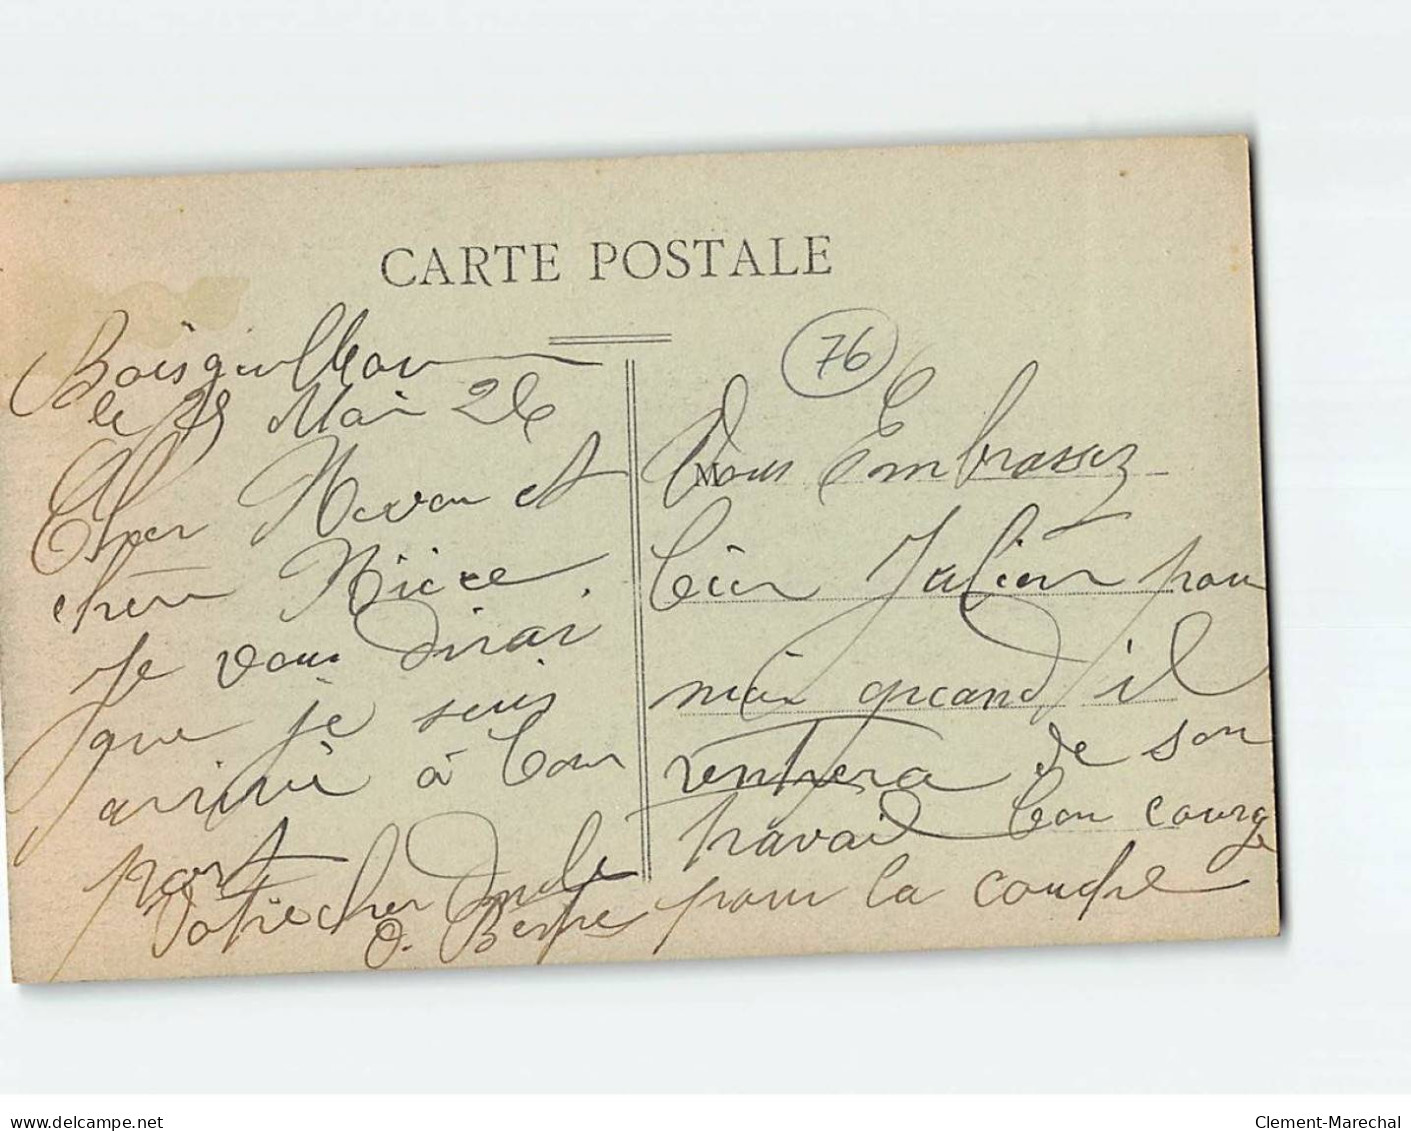 CARTE POSTALE
76
Boisguillbou
le 25 Mai 26
Cher Neveu et
chère Nièce
Je vous dirai
que je suis
arrivé à bon
port
Votre cher Oncle
O.
M
Vous Embrassez
bien Julien pour
moi quand il
rentrera de son
travail bon courage
pour la coudre
www.delcampe.net
Clement-Marechal